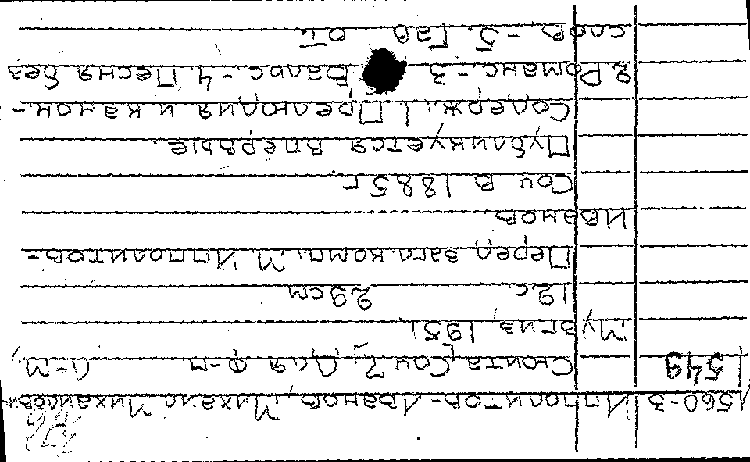 1560-3 Ипполитов-Иванов, Михаил Михайлович
549 Сюита, Соч 7. Для ф-п Л-М,
Музгиз, 1951
12 с. 29 см
Перед загл. комп. М. Ипполитов-
Иванов.
Соч в 1885 г
Публикуется впервые.
Содерж. 1 Прелюдия и канон.-
2 Романс.- 3 Вальс.- 4 Песня без
слов.- 5. Гав от